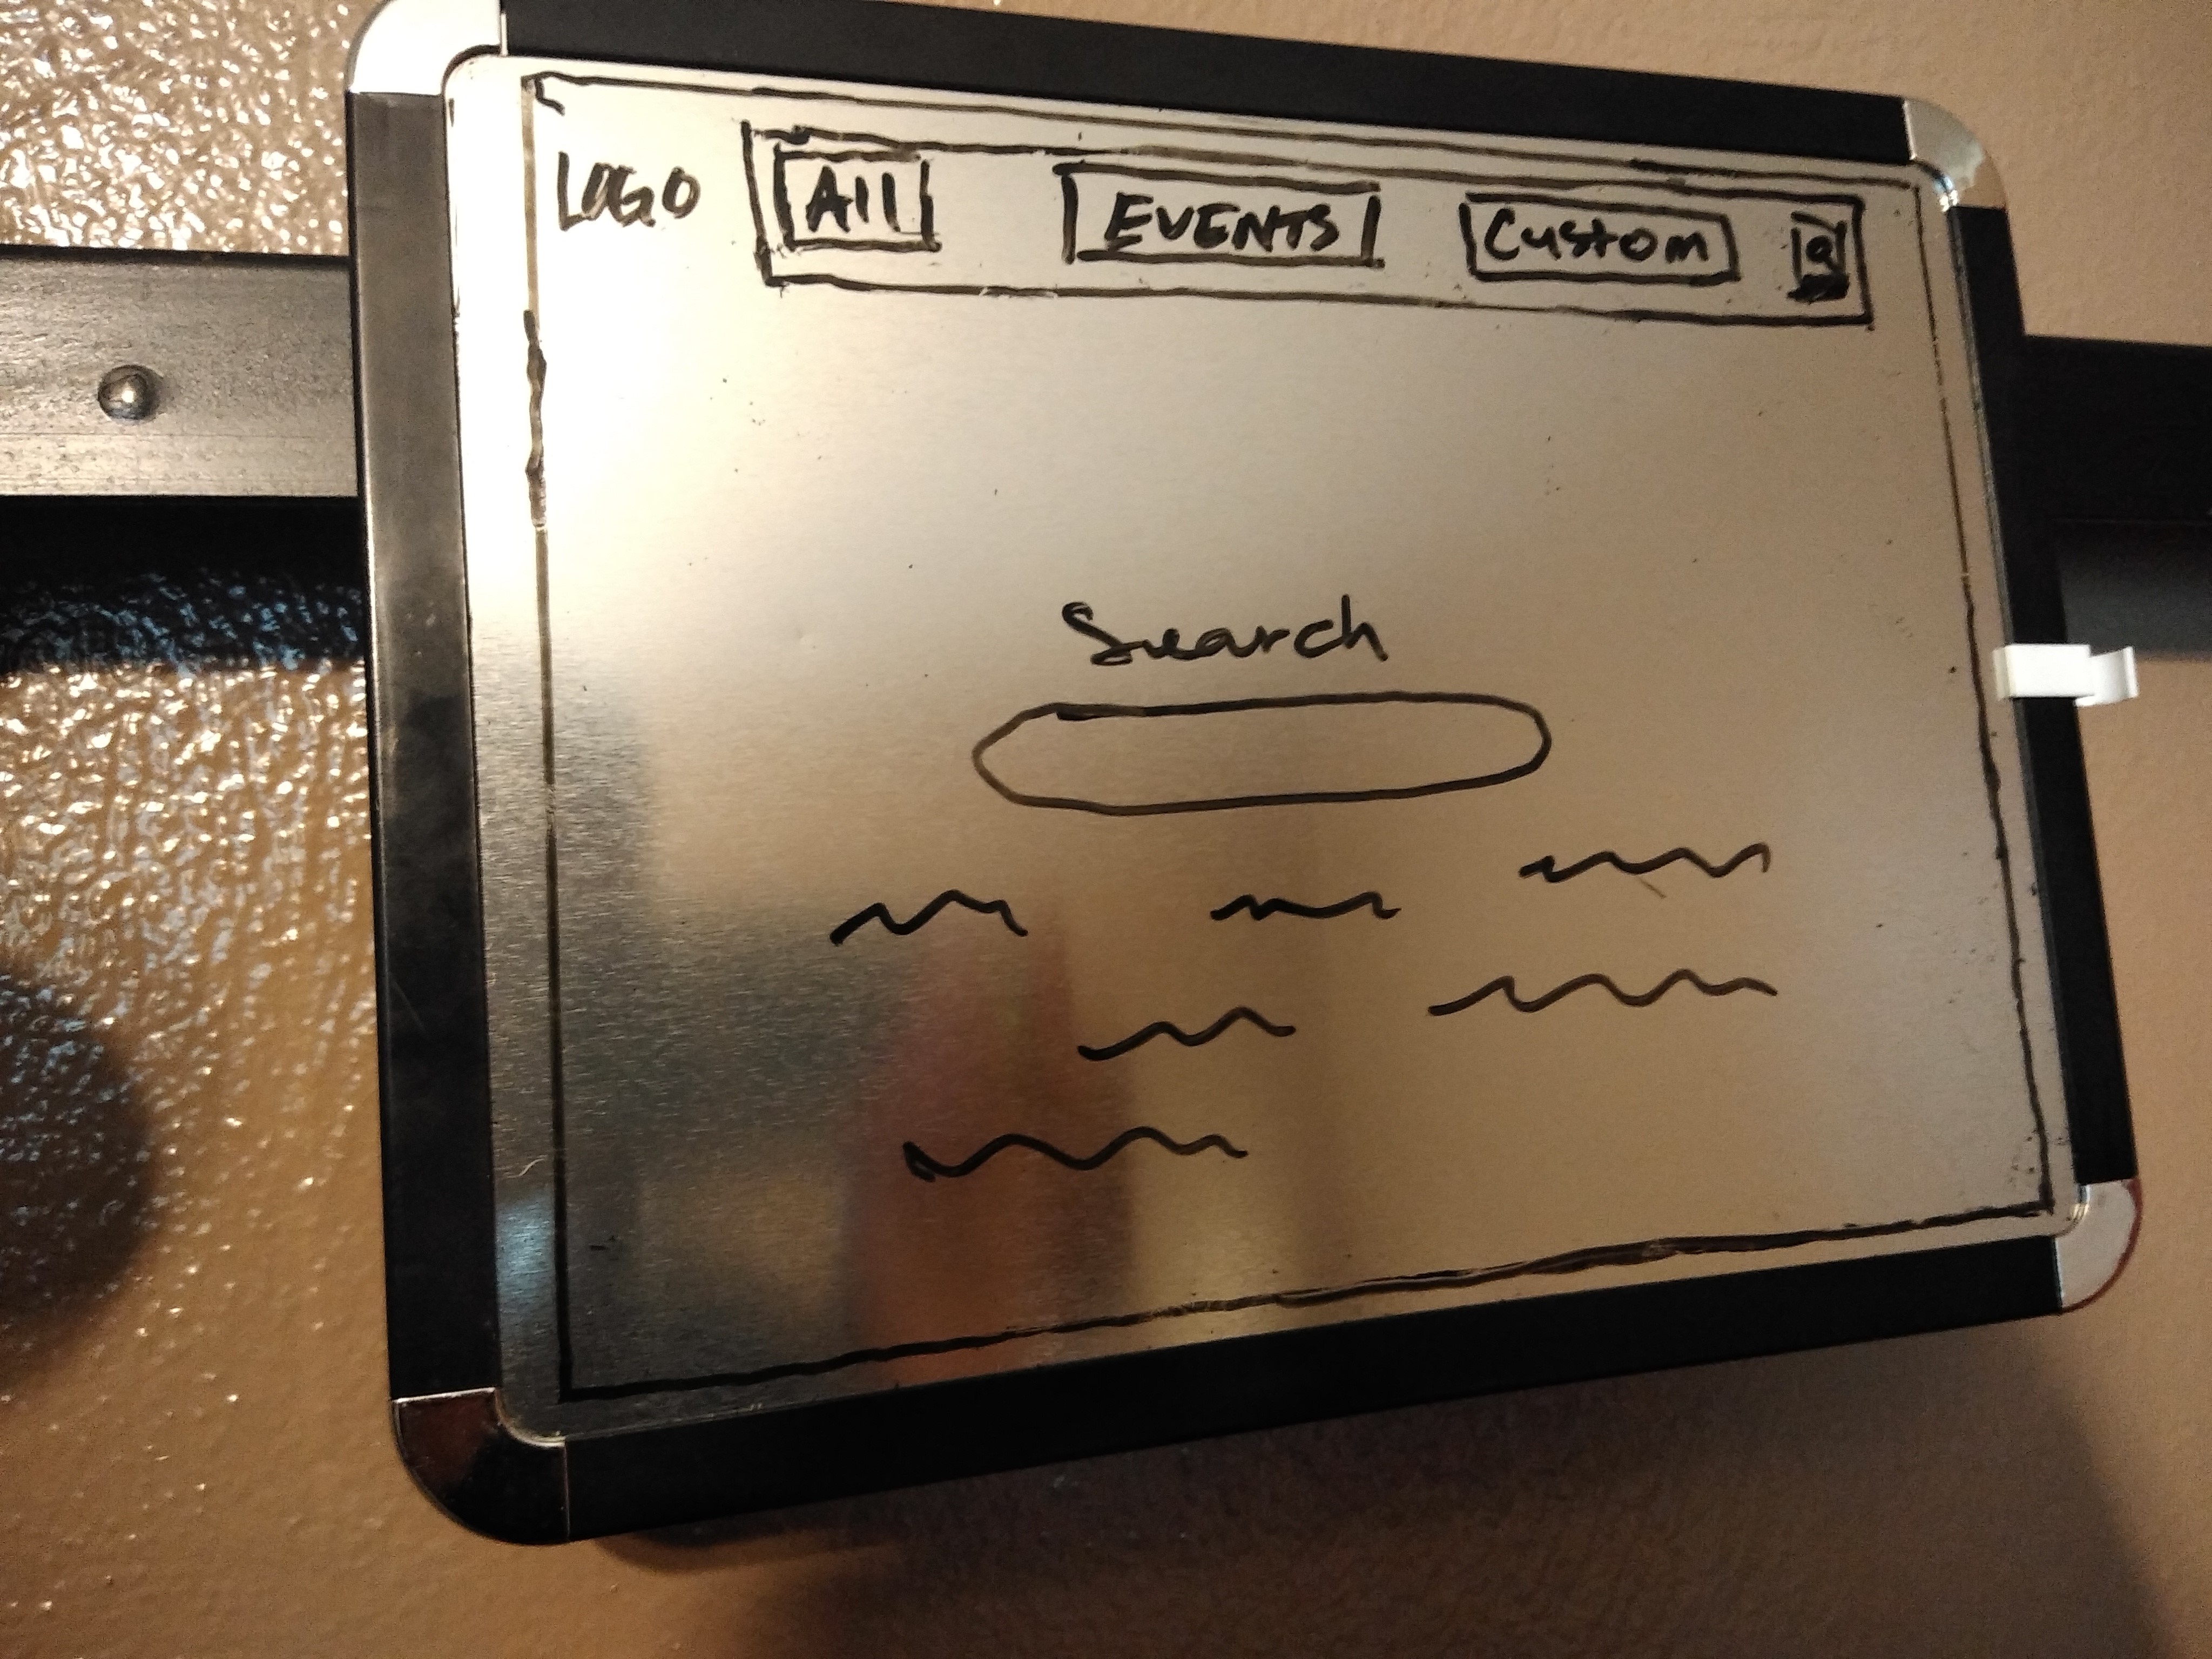 LOGO All EVENTS Custom
Search